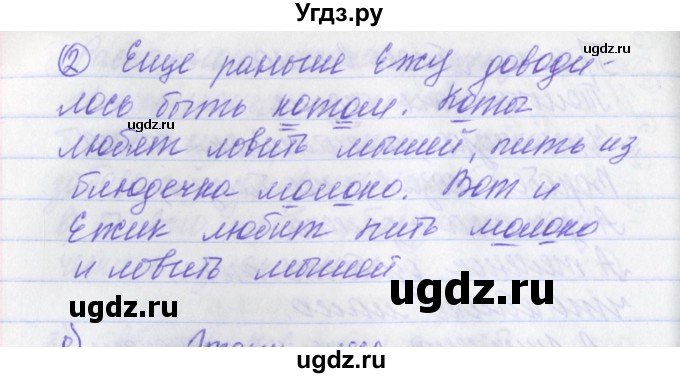 Угдз.ру
② Еще раньше Ежу доводи-
ugdz.ru
лось быть котом. Коты
ugdz.ru
любят ловить мышей, пить из
блюдечка молоко. Вот и
ugdz.ru
Ежик любит пить молоко
и ловить мышей
ugdz.ru
ugdz.ru
ugdz.ru